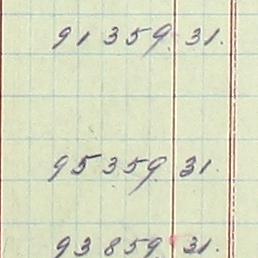 91359.31.
95359.31.
93859.31.